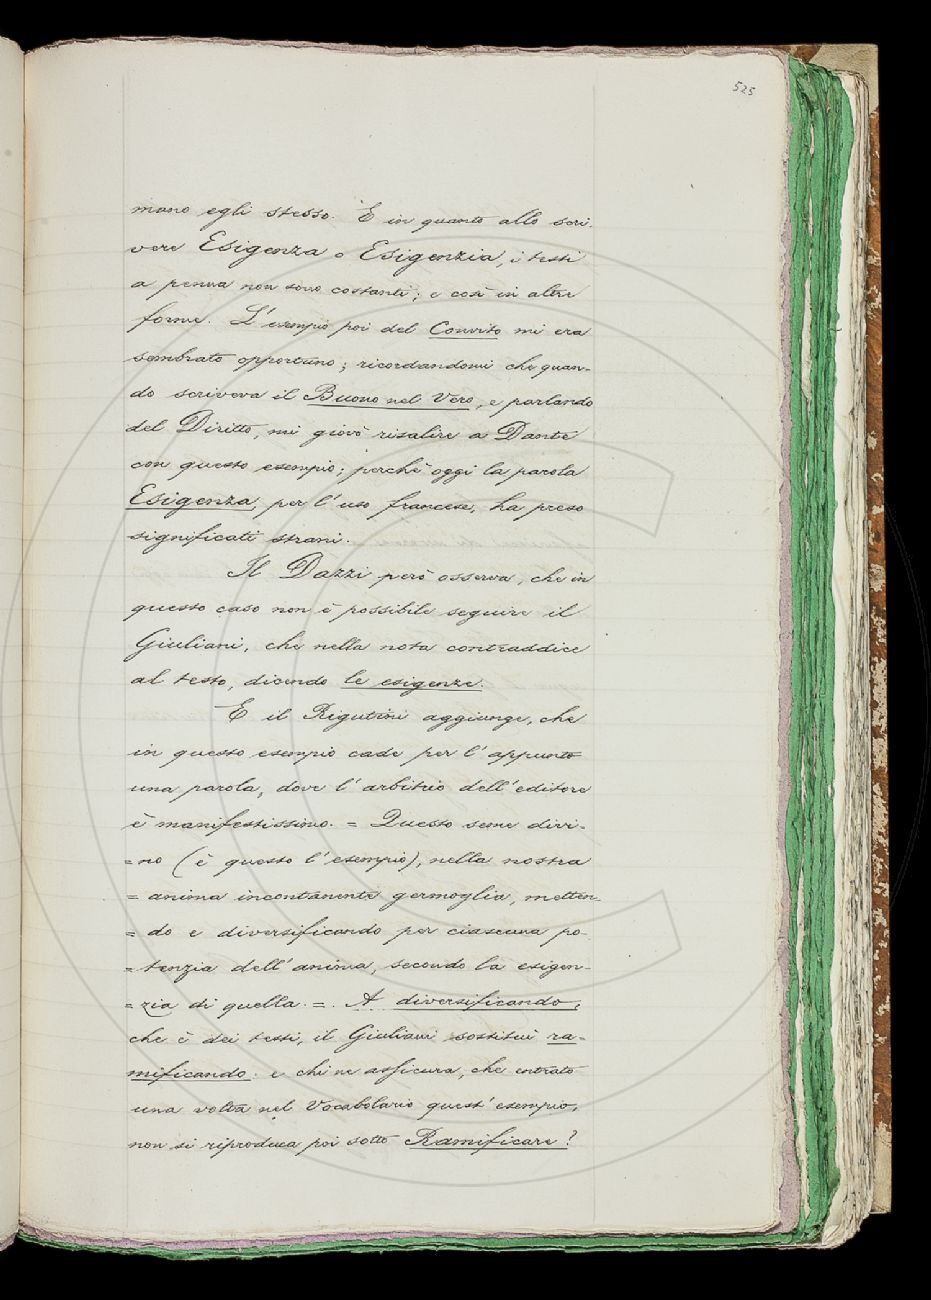 525
mano egli stesso. E in quanto allo scri-
vere Esigenza o Esigenzia, i testi
a penna non sono costanti; e così in altre
forme. L'esempio poi del Convito mi era
sembrato opportuno; ricordandomi che quan-
do scriveva il Buono nel Vero, e parlando
del Diritto, mi giovò risalire a Dante
con questo esempio; perchè oggi la parola
Esigenza, per l'uso francese, ha preso
significati strani.
Il Dazzi però osserva, che in
questo caso non è possibile seguire il
Giuliani, che nella nota contraddice
al testo, dicendo le esigenze.
E il Rigutini aggiunge, che
in questo esempio cade per l'appunto
una parola, dove l'arbitrio dell'editore
è manifestissimo. = Questo seme divi-
=no (è questo l'esempio), nella nostra
= anima incontanente germoglia, metten-
= do e diversificando per ciascuna po-
= tenzia dell'anima, secondo la esigen-
= zia di quella. =. A diversificando,
che è dei testi, il Giuliani sostituì ra-
mificando: e chi ne assicura, che entrato
una volta nel Vocabolario quest'esempio,
non si riproduca poi sotto Ramificare?